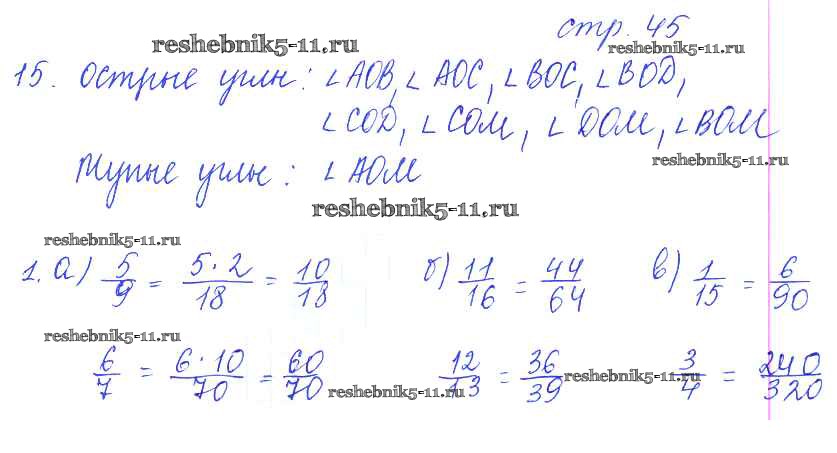 стр. 45
reshebnik5-11.ru reshebnik5-11.ru
15. Острые углы: ∠AOB, ∠AOC, ∠BOC, ∠BOD,
∠COD, ∠COM, ∠DOM, ∠BOM
reshebnik5-11.ru
Тупые углы: ∠AOM
reshebnik5-11.ru
reshebnik5-11.ru
1. а) 5/9 = 5·2/18 = 10/18 б) 11/16 = 44/64 в) 1/15 = 6/90
reshebnik5-11.ru
6/7 = 6·10/70 = 60/70 12/13 = 36/39 3/4 = 240/320
reshebnik5-11.ru reshebnik5-11.ru